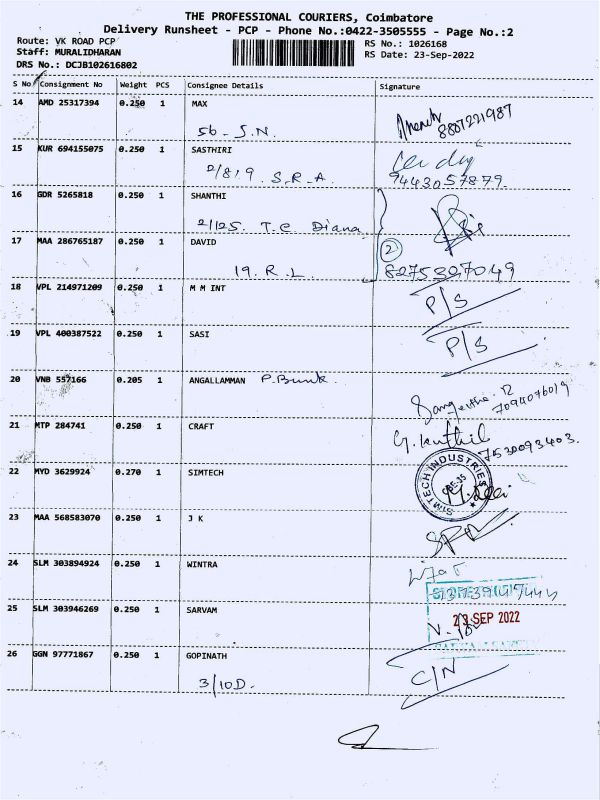 THE PROFESSIONAL COURIERS, Coimbatore
Delivery Runsheet - PCP - Phone No.:0422-3505555 - Page No.:2
Route: VK ROAD PCP
RS No.: 1026168
Staff: MURALIDHARAN
RS Date: 23-Sep-2022
DRS No.: DCJB102616802
S No Consignment No Weight PCS Consignee Details Signature
14 AMD 25317394 0.250 1 MAX
56 - S.N. 8807221987
15 KUR 694155075 0.250 1 SASTHIRI
2/819. S.R.A. 9443057879.
16 GDR 5265818 0.250 1 SHANTHI
2/125. T.C Diana
17 MAA 286765187 0.250 1 DAVID
2
19. R.L. 8275327049
18 VPL 214971209 0.250 1 M M INT
P/S
19 VPL 400387522 0.250 1 SASI
P/S
20 VNB 557166 0.205 1 ANGALLAMMAN P. Bunk.
7094076019
21 MTP 284741 0.250 1 CRAFT
7530093403.
22 MYD 3629924 0.270 1 SIMTECH
SIMTECH INDUSTRIES
23 MAA 568583070 0.250 1 J K
24 SLM 303894924 0.250 1 WINTRA
25 SLM 303946269 0.250 1 SARVAM
23 SEP 2022
26 GGN 97771867 0.250 1 GOPINATH
3/10D. C/N